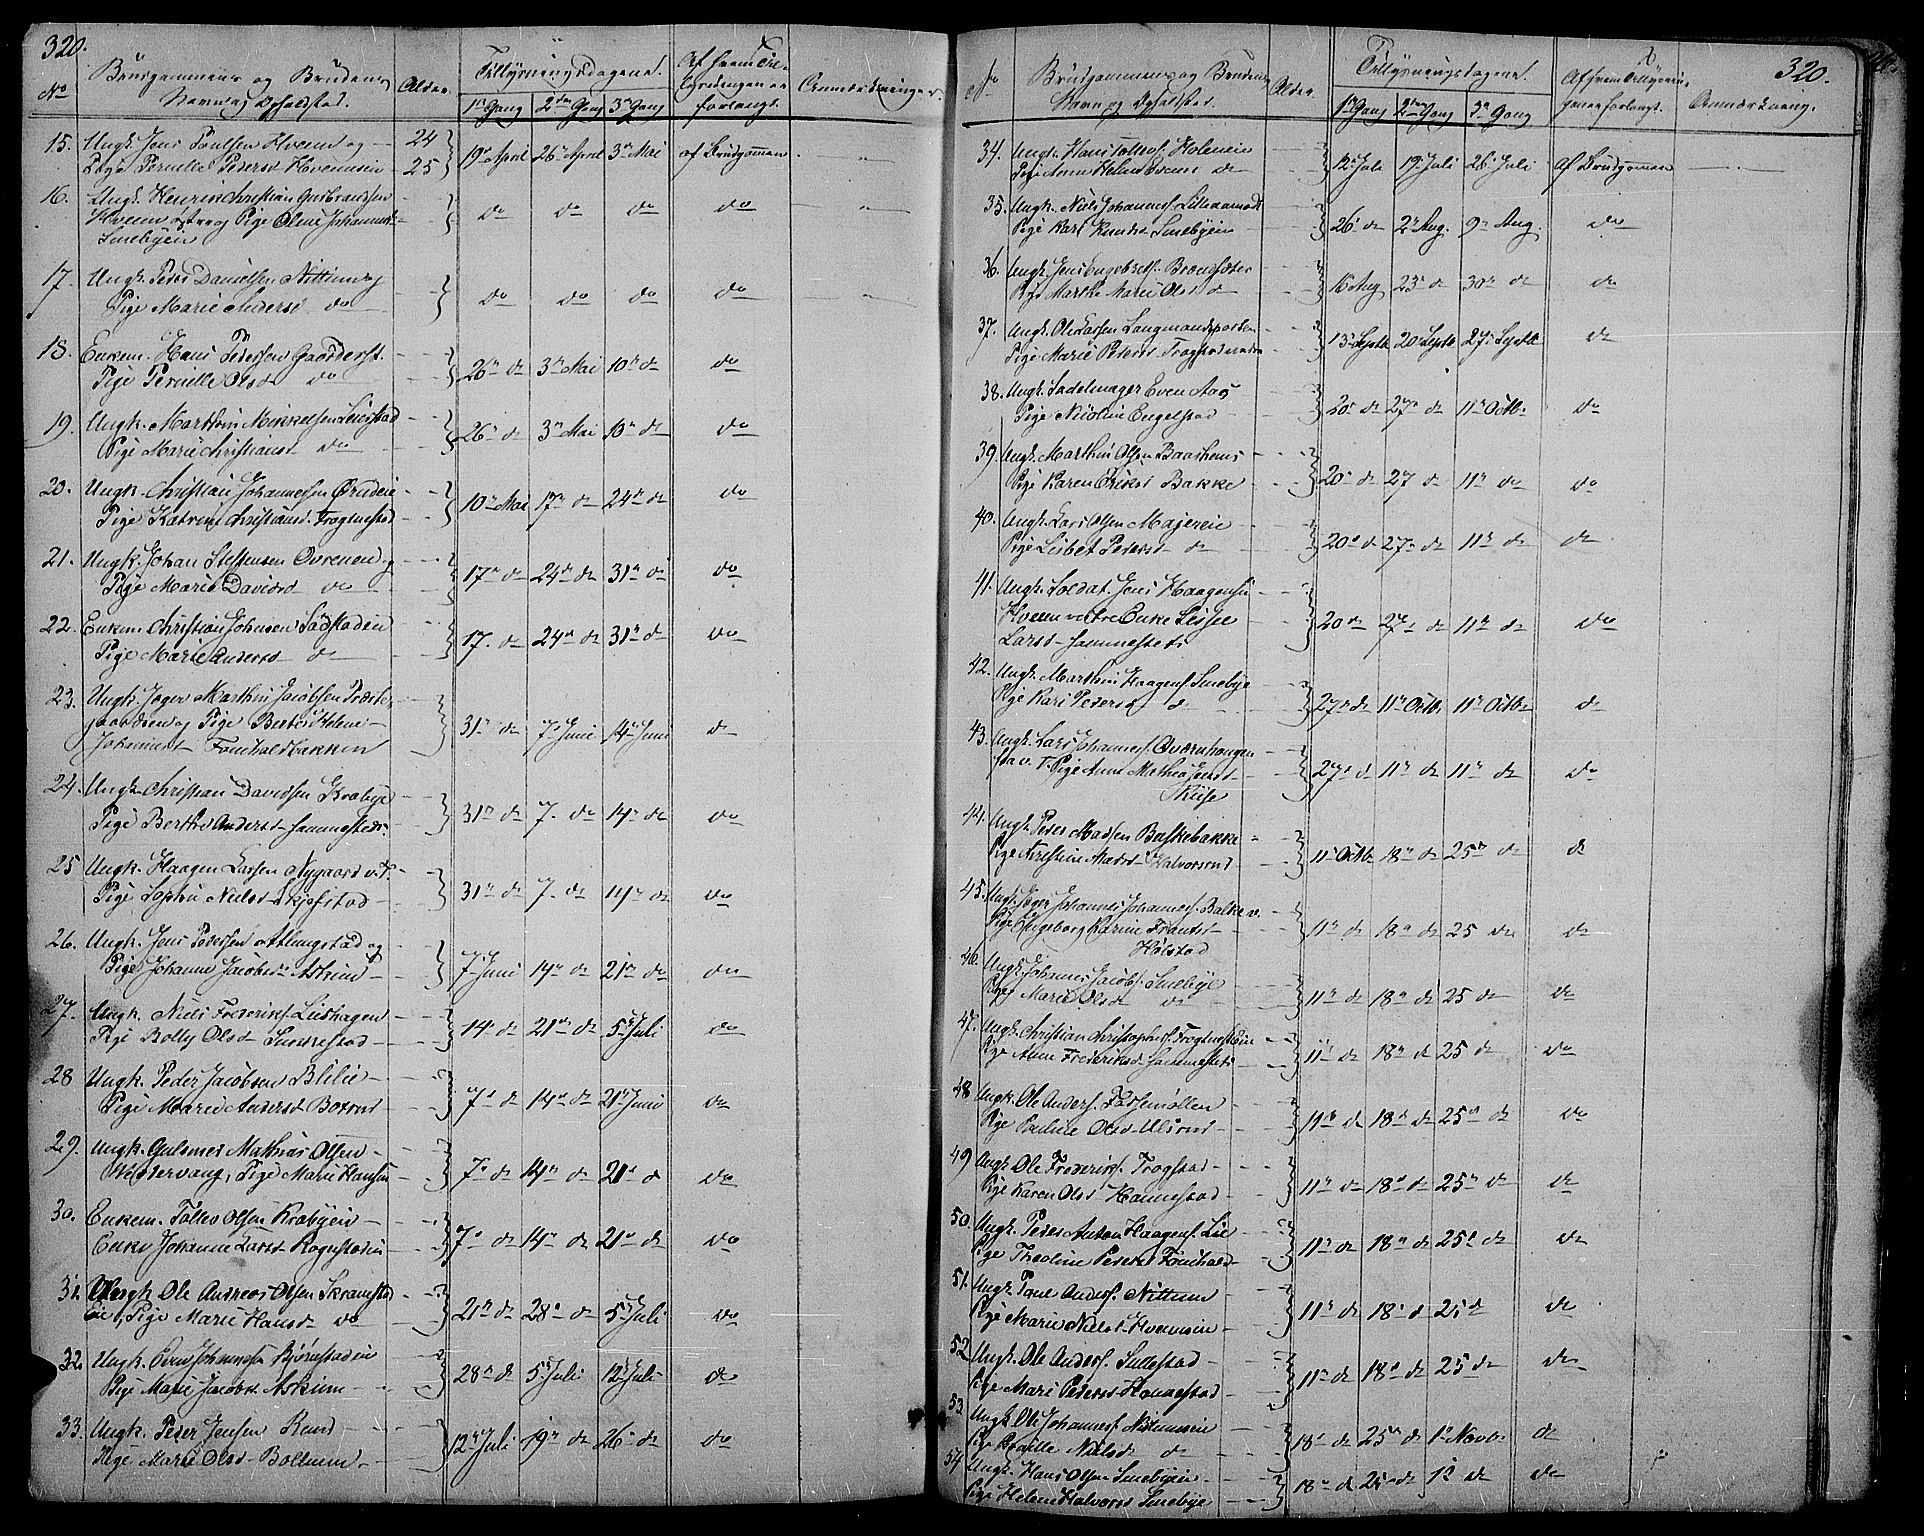 320.
No
Brudgommens og Brudens
Navn og Opholdsted.
Alder.
Tillysningsdagene.
1ste Gang 2den Gang 3die Gang
Af hvem Til-
lysningen er
forlangt.
Anmærkninger.
15. Ungk. Jens Poulsen Hveem og 24
Pige Pernille Pedersd Hvemseie 25 19de April 26de April 3die Mai af Brudgommen
16. Ungk. Henrik Christian Gulbrandsen
Hveem østre og Pige Oline Johannesd
Smebyeie do do do do
17. Ungk. Peder Danielsen Nittim og
Pige Marie Andersd do do do do do
18. Enkem. Hans Pedersen Gaardersst.
Pige Pernille Olsd do 26de do 3die Mai 10de do do
19. Ungk. Marthin Mikkelsen Leiestad
Pige Marie Christiansd do 26de do 3die Mai 10de do do
20. Ungk. Christian Johannesen Ørudeie
Pige Katrine Christiansd. Frognestad 10de Mai 17de do 24de do do
21. Ungk. Johan Steffensen Ovrenen og
Pige Marie Davidsd do 17de do 24de do 31te do do
22. Enkem. Christian Johnsen Sødstadeie
Pige Marie Andersd do 17. do 24de do 31te do do
23. Ungk. Jæger Marthin Jacobsen Præste-
gaardseie og Pige Berthe Helene
Johannesd Fonkaldbakken 31te do 7de Juni 14de Juni do
24. Ungk. Christian Davidsen Krabye
Pige Berthe Andersd Sammesteds 31te do 7. do 14de do do
25 Ungk. Haagen Larsen Nygaard v. T.
Pige Sophie Nielsd Skjefstad 31te do 7. do 14de do do
26. Ungk. Jens Pedersen Atlungstad og
Pige Johanne Jacobsd Askim 7de Juni 14de do 21de do do
27. Ungk. Niels Frederiks. Liedhagen
Pige Bolly Olsd Sundrestad 14 do 21de do 5te Juli do
28 Ungk. Peder Jacobsen Blilie
Pige Marie Andersd Boxrud 7de do 14de do 21de Juni do
29. Ungk. Gulsmed Mathias Olsen
Westervang, Pige Marie Hansen 7de do 14de do 21de do do
30. Enkem. Tollev Olsen Krabyeie
Enke Johanne Larsd Rognstadeie 7de do 14de do 21de do do
31. Ungk Ole Andreas Olsen Skramstad
Eie, Pige Marie Hansd do 21de do 28de do 5te Juli do
32. Ungk. Even Johannesen Bjørnstadeie
Pige Marie Jacobsd Askim 28de do 5te Juli 12te Juli do
33. Ungk. Peder Jensen Rund
Pige Marie Olsd Bollerud 12te Juli 19de do 26de do do
320.
No
Brudgommens og Brudens
Navn og Opholdsted.
Alder.
Tillysningsdagene.
1ste Gang 2den Gang 3die Gang
Af hvem Tillysnin-
gen er forlangt.
Anmærkning.
34. Ungk. Hans Tolles. Holeneie
Pige Anne Helene Evensd do 12te Juli 19de Juli 26de Juli af Brudgommen
35. Ungk. Niels Johannes. Lilleaamodt
Pige Kari Knudsd Smebyeie 26de do 2den Aug. 9de Aug. do
36. Ungk. Jens Engebrets. Brændsæter
Pige Marthe Marie Olsd do 16 Aug 23de do 30te do do
37. Ungk. Ole Larsen Langmandsporten
Pige Marie Pedersd Frogstad nedre 13de Septb 20de Septb 27de Septb do
38. Ungk. Sadelmager Even Aas
Pige Nicoline Engelstad 20de do 27de do 11te Octb. do
39. Ungk. Marthin Olsen Baashuus
Pige Karen Eriksd Bakke 20de do 27 do 11te do do
40. Ungk. Lars Olsen Majereie
Pige Lisbet Pedersd do 20de do 27de do 11te do do
41. Ungk. Soldat. Jens Haagensen
Hveem vestre Enke Lisse
Larsd Sammesteds 20de do 27de do 11te do do
42. Ungk. Marthin Haagens. Smebye
Pige Kari Pedersd do 27de do 11te Octb. 11te Octbr do
43. Ungk. Lars Johannes. Overnhaugen
fra v. T. Pige Anne Mathea Jensd
Kiise 27de do 11te do 11te do do
44. Ungk. Peder Madsen Balkebakke
Pige Kirstine Madsd Halvorsrud 11te Octb. 18de do 25de do do
45. Ungk. Jæger Johannes Johannes. Balke v.
Pige Ingeborg Karine Frantsd
Holstad 11te do 18de do 25 do do
46. Ungk. Johannes Jacobs. Smebye
Pige Marie Olsd do 11te do 18de do 25 do do
47. Ungk. Christian Christophers. Frognestadeie
Pige Anne Frederiksd Sammesteds 11te do 18de do 25 do do
48 Ungk. Ole Anders. Fossemøllen
Pige Pauline Olsd Ulsrud 11te do 18de do 25de do do
49 Ungk. Ole Frederiks. Frogstad
Pige Karen Olsd Honnestad 11te do 18de do 25de do do
50. Ungk. Peder Anton Haagens. Lie
Pige Theoline Pedersd Fonkald 11te do 18de do 25de do do
51. Ungk. Povel Anders. Nittim
Pige Marie Nielsd Hvemseie 11te do 18de do 25 do do
52 Ungk. Ole Anders. Sullestad
Pige Mari Pedersd Honnestad 11te do 18de do 25 do do
53 Ungk Ole Johannes. Nittimseie
Pige Pernille Nielsd do 18de do 25de do 1ste Novb. do
54 Ungk. Hans Olsen Smebyeie
Pige Helene Halvorsd Smebye 18de do 25de do 1ste do do